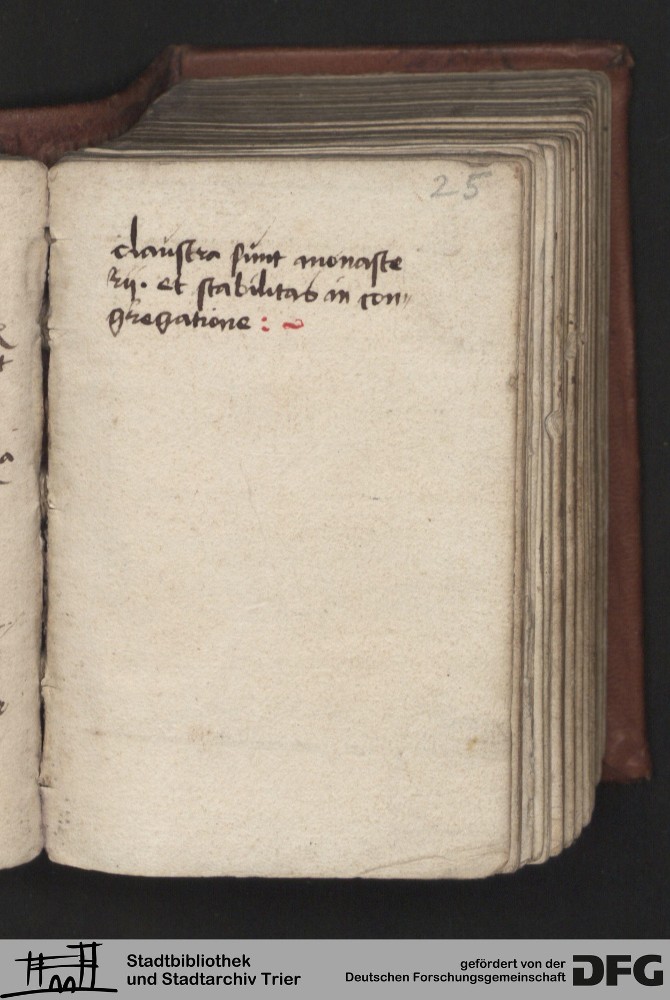 25
claustra sunt monaste
rii. et stabilitas in con„
gregatione : ~
Stadtbibliothek
und Stadtarchiv Trier
gefördert von der
Deutschen Forschungsgemeinschaft
DFG